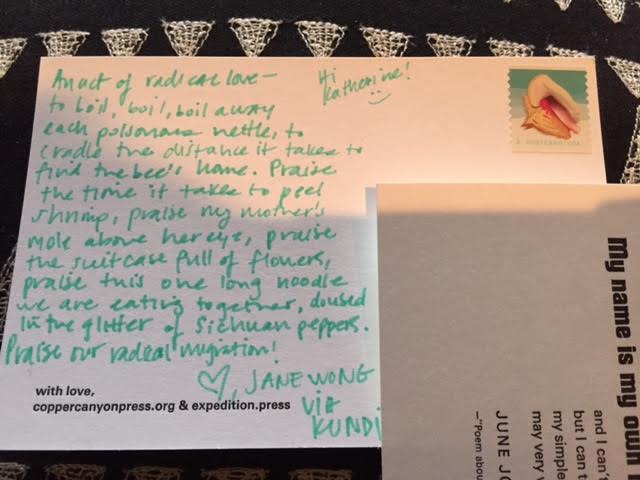 An act of radical love—
to boil, boil, boil away
each poisonous nettle, to
cradle the distance it takes to
find the bee's home. Praise
the time it takes to peel
shrimp, praise my mother's
mole above her eye, praise
the suitcase full of flowers,
praise this one long noodle
we are eating together, doused
in the glitter of Sichuan peppers.
Praise our radical migration!
♡, JANE WONG
VIA
KUNDI
Hi
Katherine!
with love,
coppercanyonpress.org & expedition.press
POSTCARD USA
My name is my own
and I can't
but I can t
my simple
may very v
JUNE JO
—"Poem abou